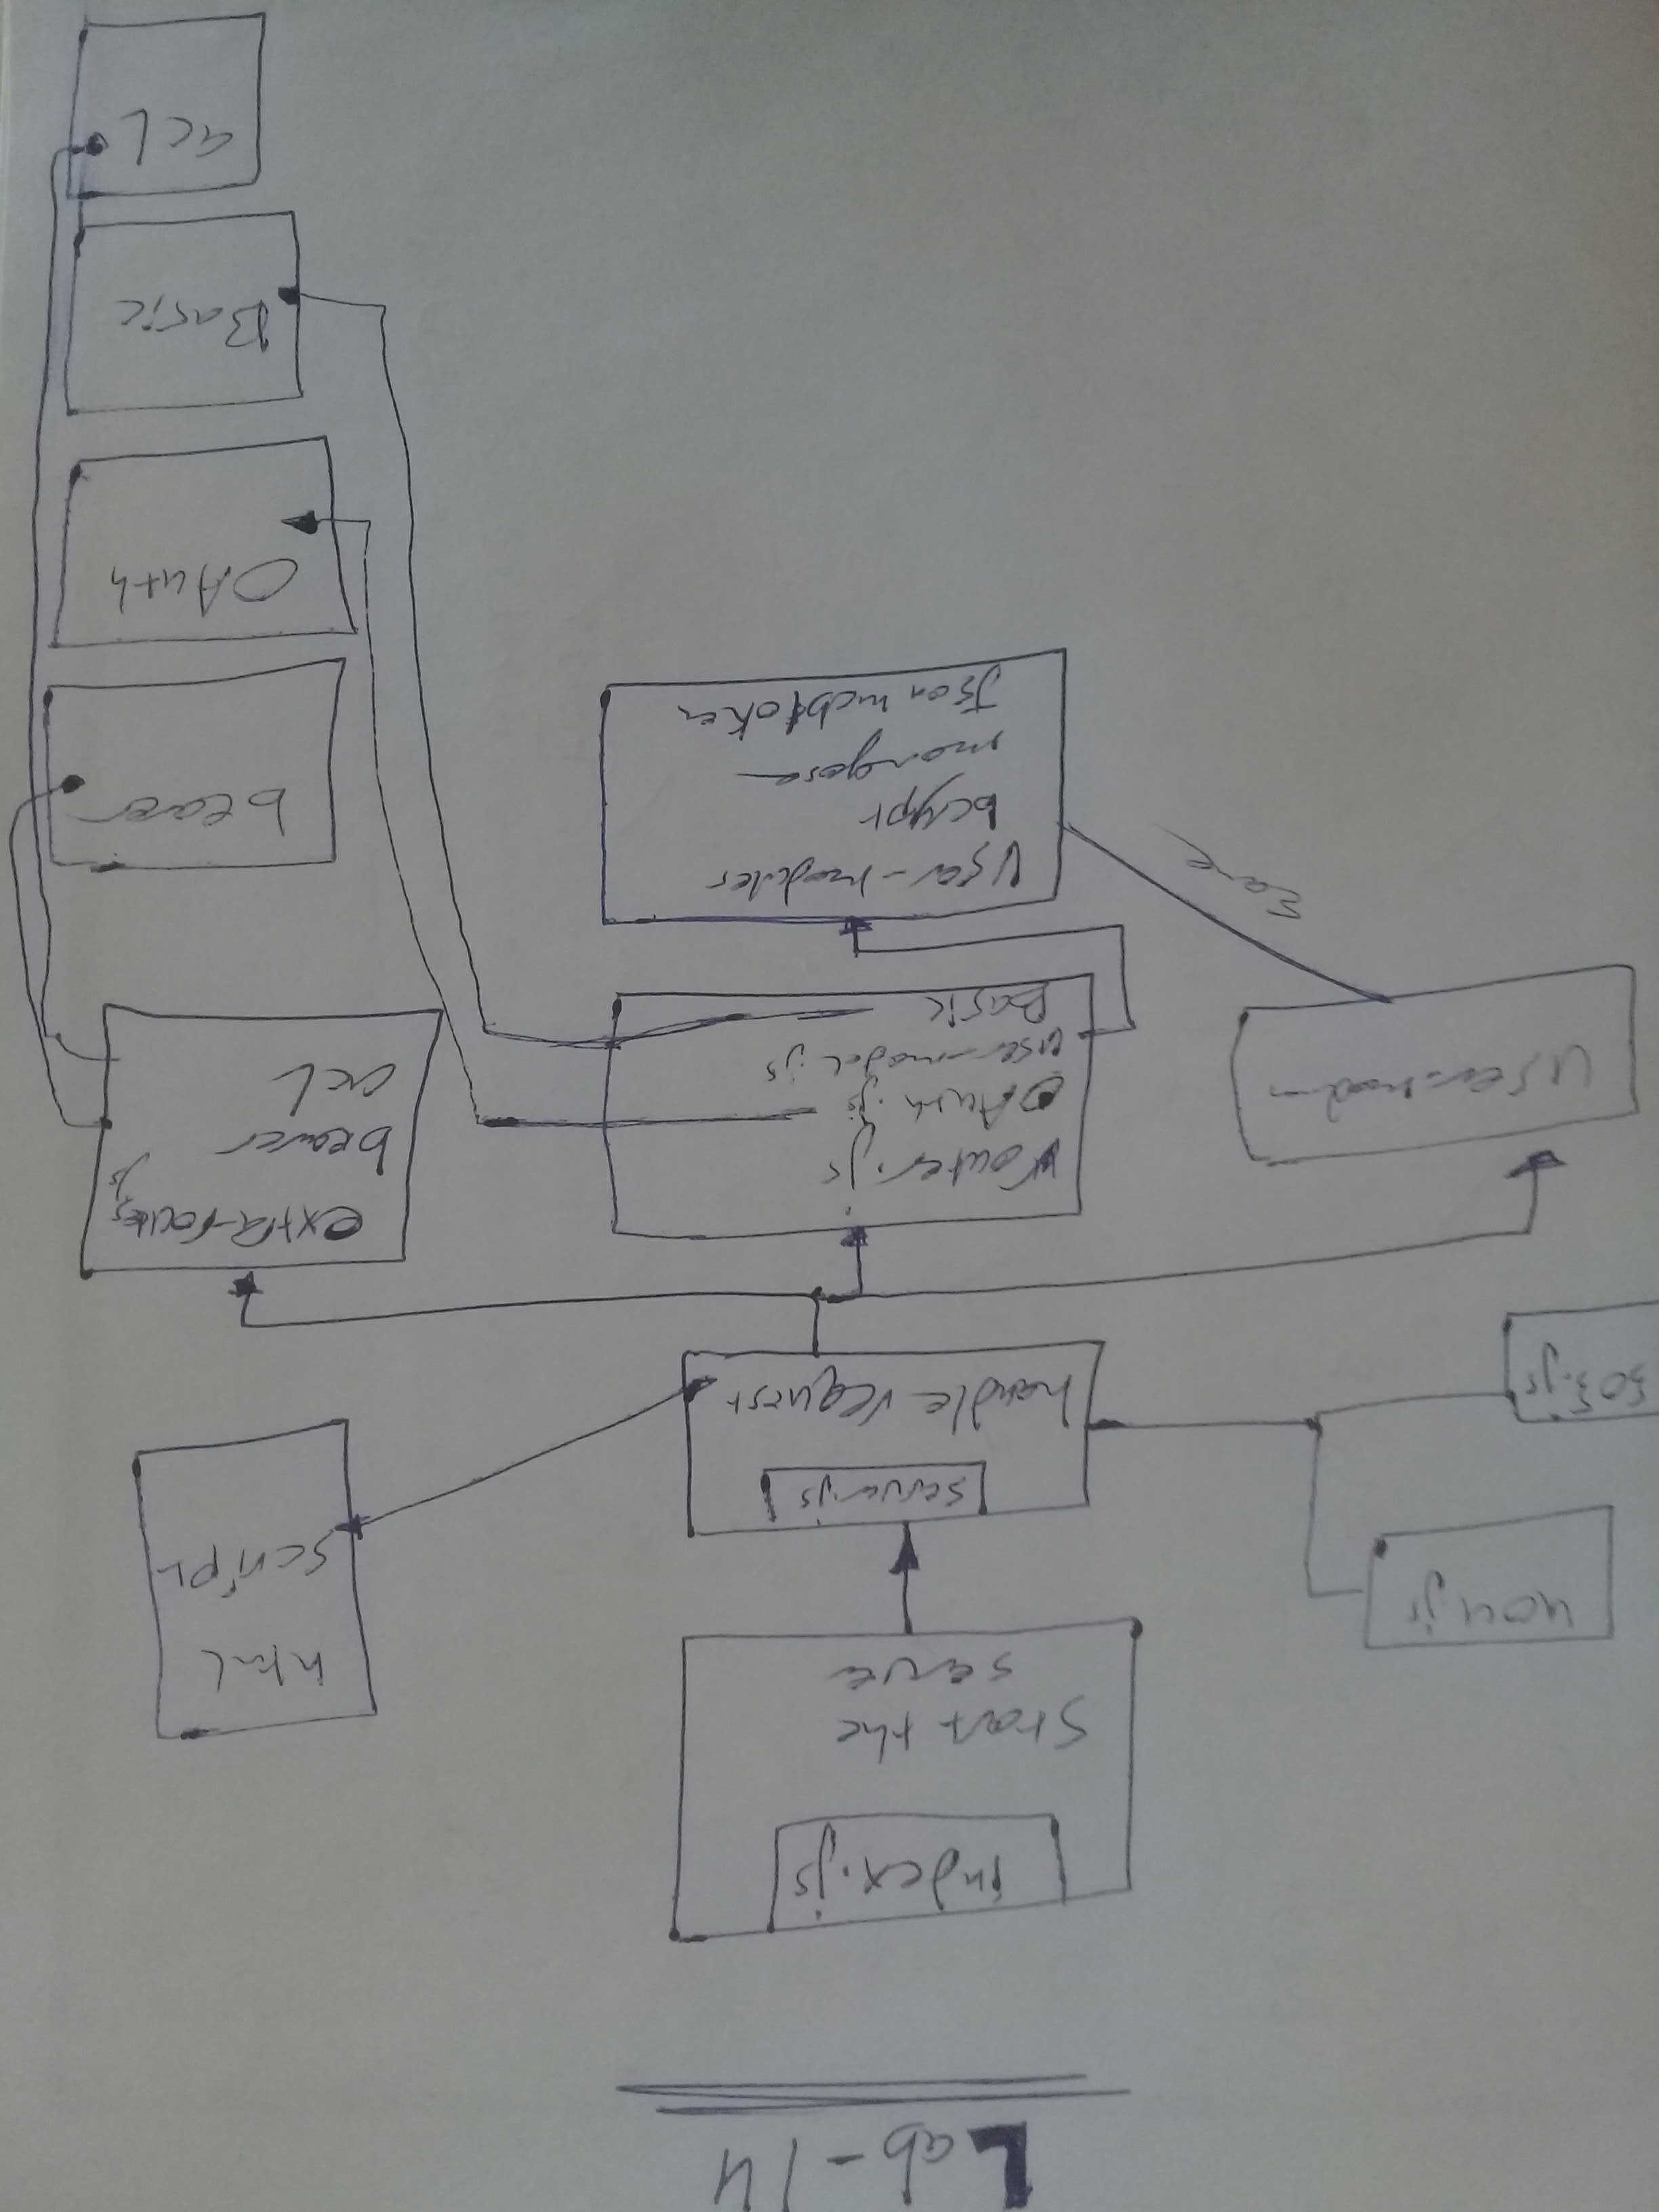 Lab-14
index.js
Start the
server
404.js
html
script
server.js
handle request
505.js
router.js
OAuth.js
user-model.js
Basic
extra-routes
js
bearer
acl
user-modules
bcrypt
mongose
Json webtoken
bearer
OAuth
Basic
acl